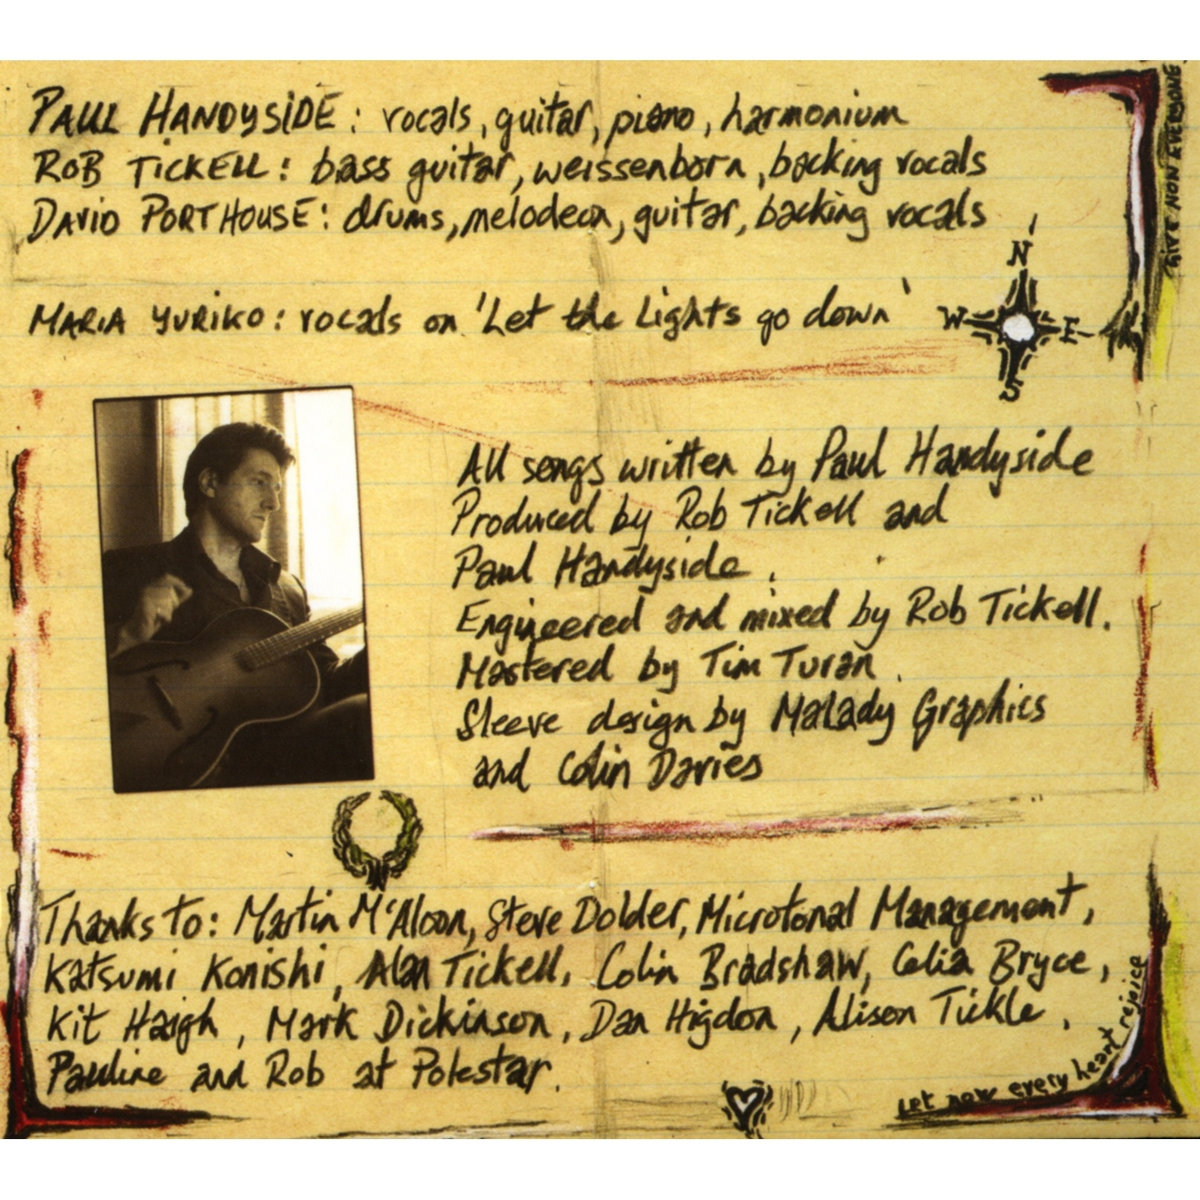 PAUL HANDYSIDE: vocals, guitar, piano, harmonium
ROB TICKELL: bass guitar, weissenborn, backing vocals
DAVID PORTHOUSE: drums, melodeon, guitar, backing vocals
MARIA YURIKO: vocals on 'Let the Lights go down'
N
W E
S
All songs written by Paul Handyside
Produced by Rob Tickell and
Paul Handyside.
Engineered and mixed by Rob Tickell.
Mastered by Tim Turan.
Sleeve design by Malady Graphics
and Colin Davies
Thanks to: Martin M'Aloon, Steve Dolder, Microtonal Management,
Katsumi Konishi, Alan Tickell, Colin Bradshaw, Celia Bryce,
Kit Haigh, Mark Dickinson, Dan Higdon, Alison Tickle,
Pauline and Rob at Polestar.
Let now every heart rejoice